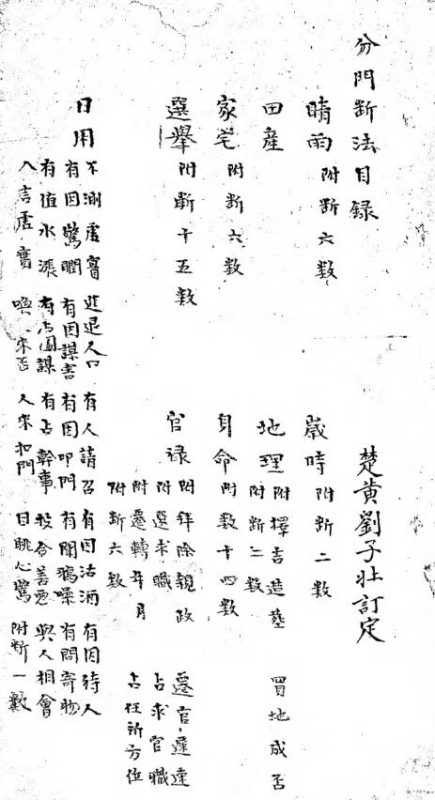 分門断法目録
楚黄劉子壮訂定
晴雨 附断六数
歳時 附断二数
田産
地理 附擇吉造葬 買地成否
附断二数
家宅 附断六数
身命 附数十四数
選舉 附斷十五数
官禄 附拜除親政 遷官遲速
附選求職 占求官職
附遷轉年月 占任所方位
附断六数
日用 不測虚實 進退人口 有人請召 有因沽酒 有因待人
有因驚 有因謀害 有因叩門 有聞鴉噪 有問寄物
有值水漲 有占圖謀 有占幹事 投合善惡 與人相會
人言虚實 喚 来否 人来扣門 目眺心驚 附断一數